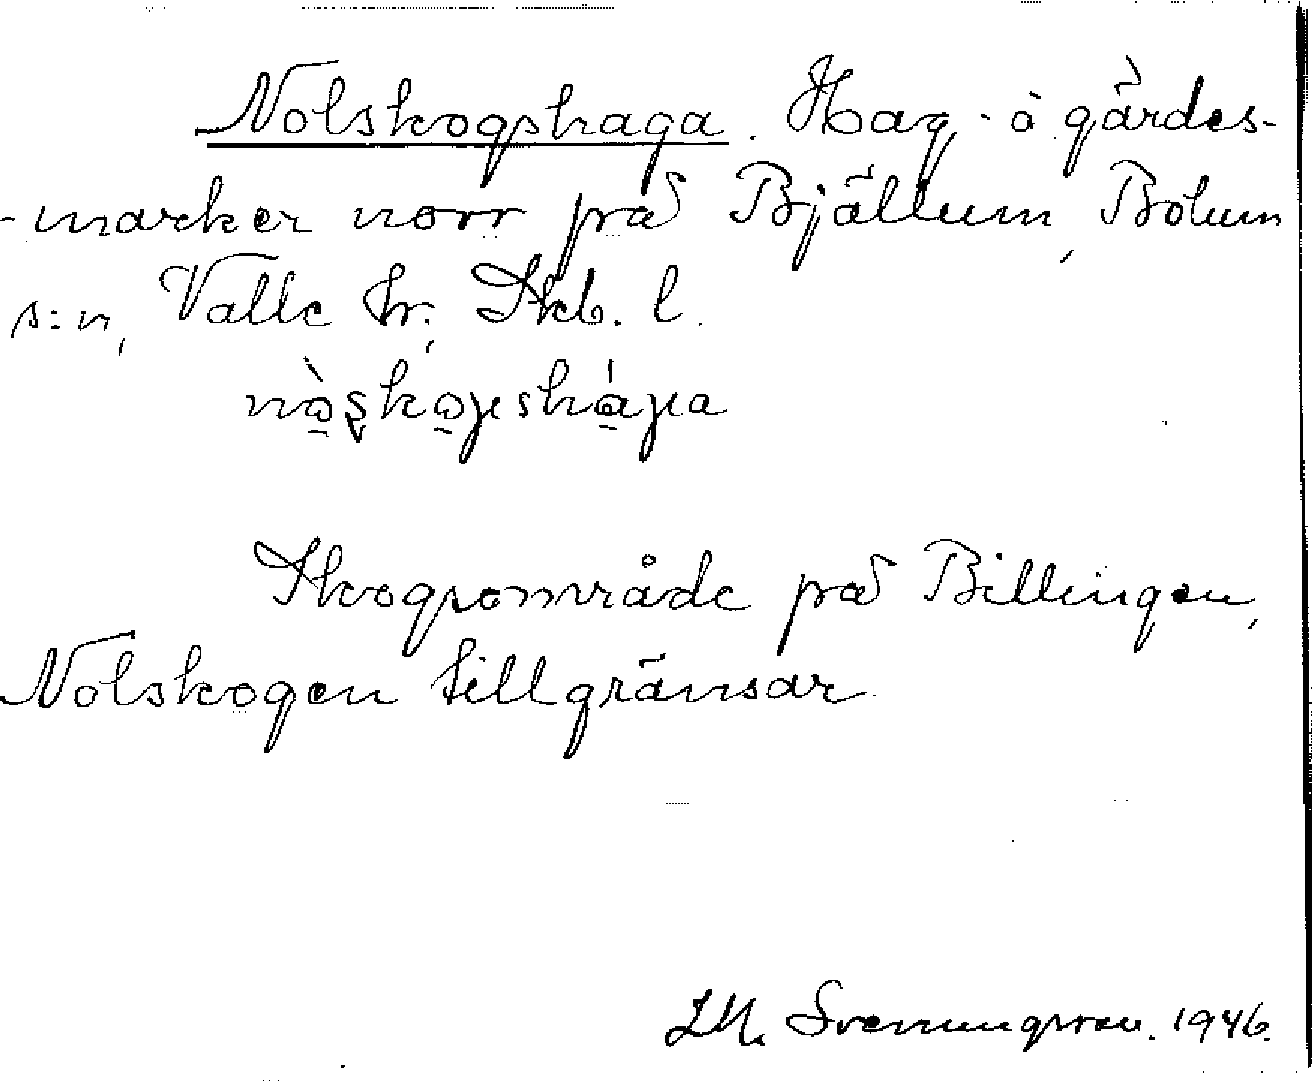 Nolskogshaga. Hag- å gärdes-
-marker norr på Bjällum, Bolum
s:n, Valle hr; Skb. l.
nòskogeshága
Skogsområde på Billingen,
Nolskogen tillgränsar
Svenungsson. 1946.